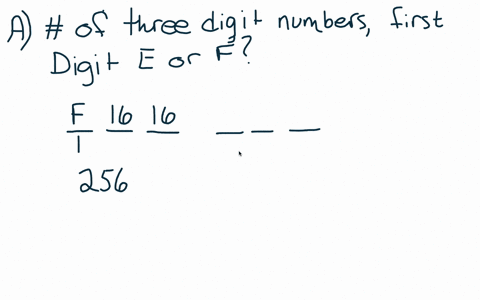 A) # of three digit numbers, first
Digit E or F?
F 16 16
1
256